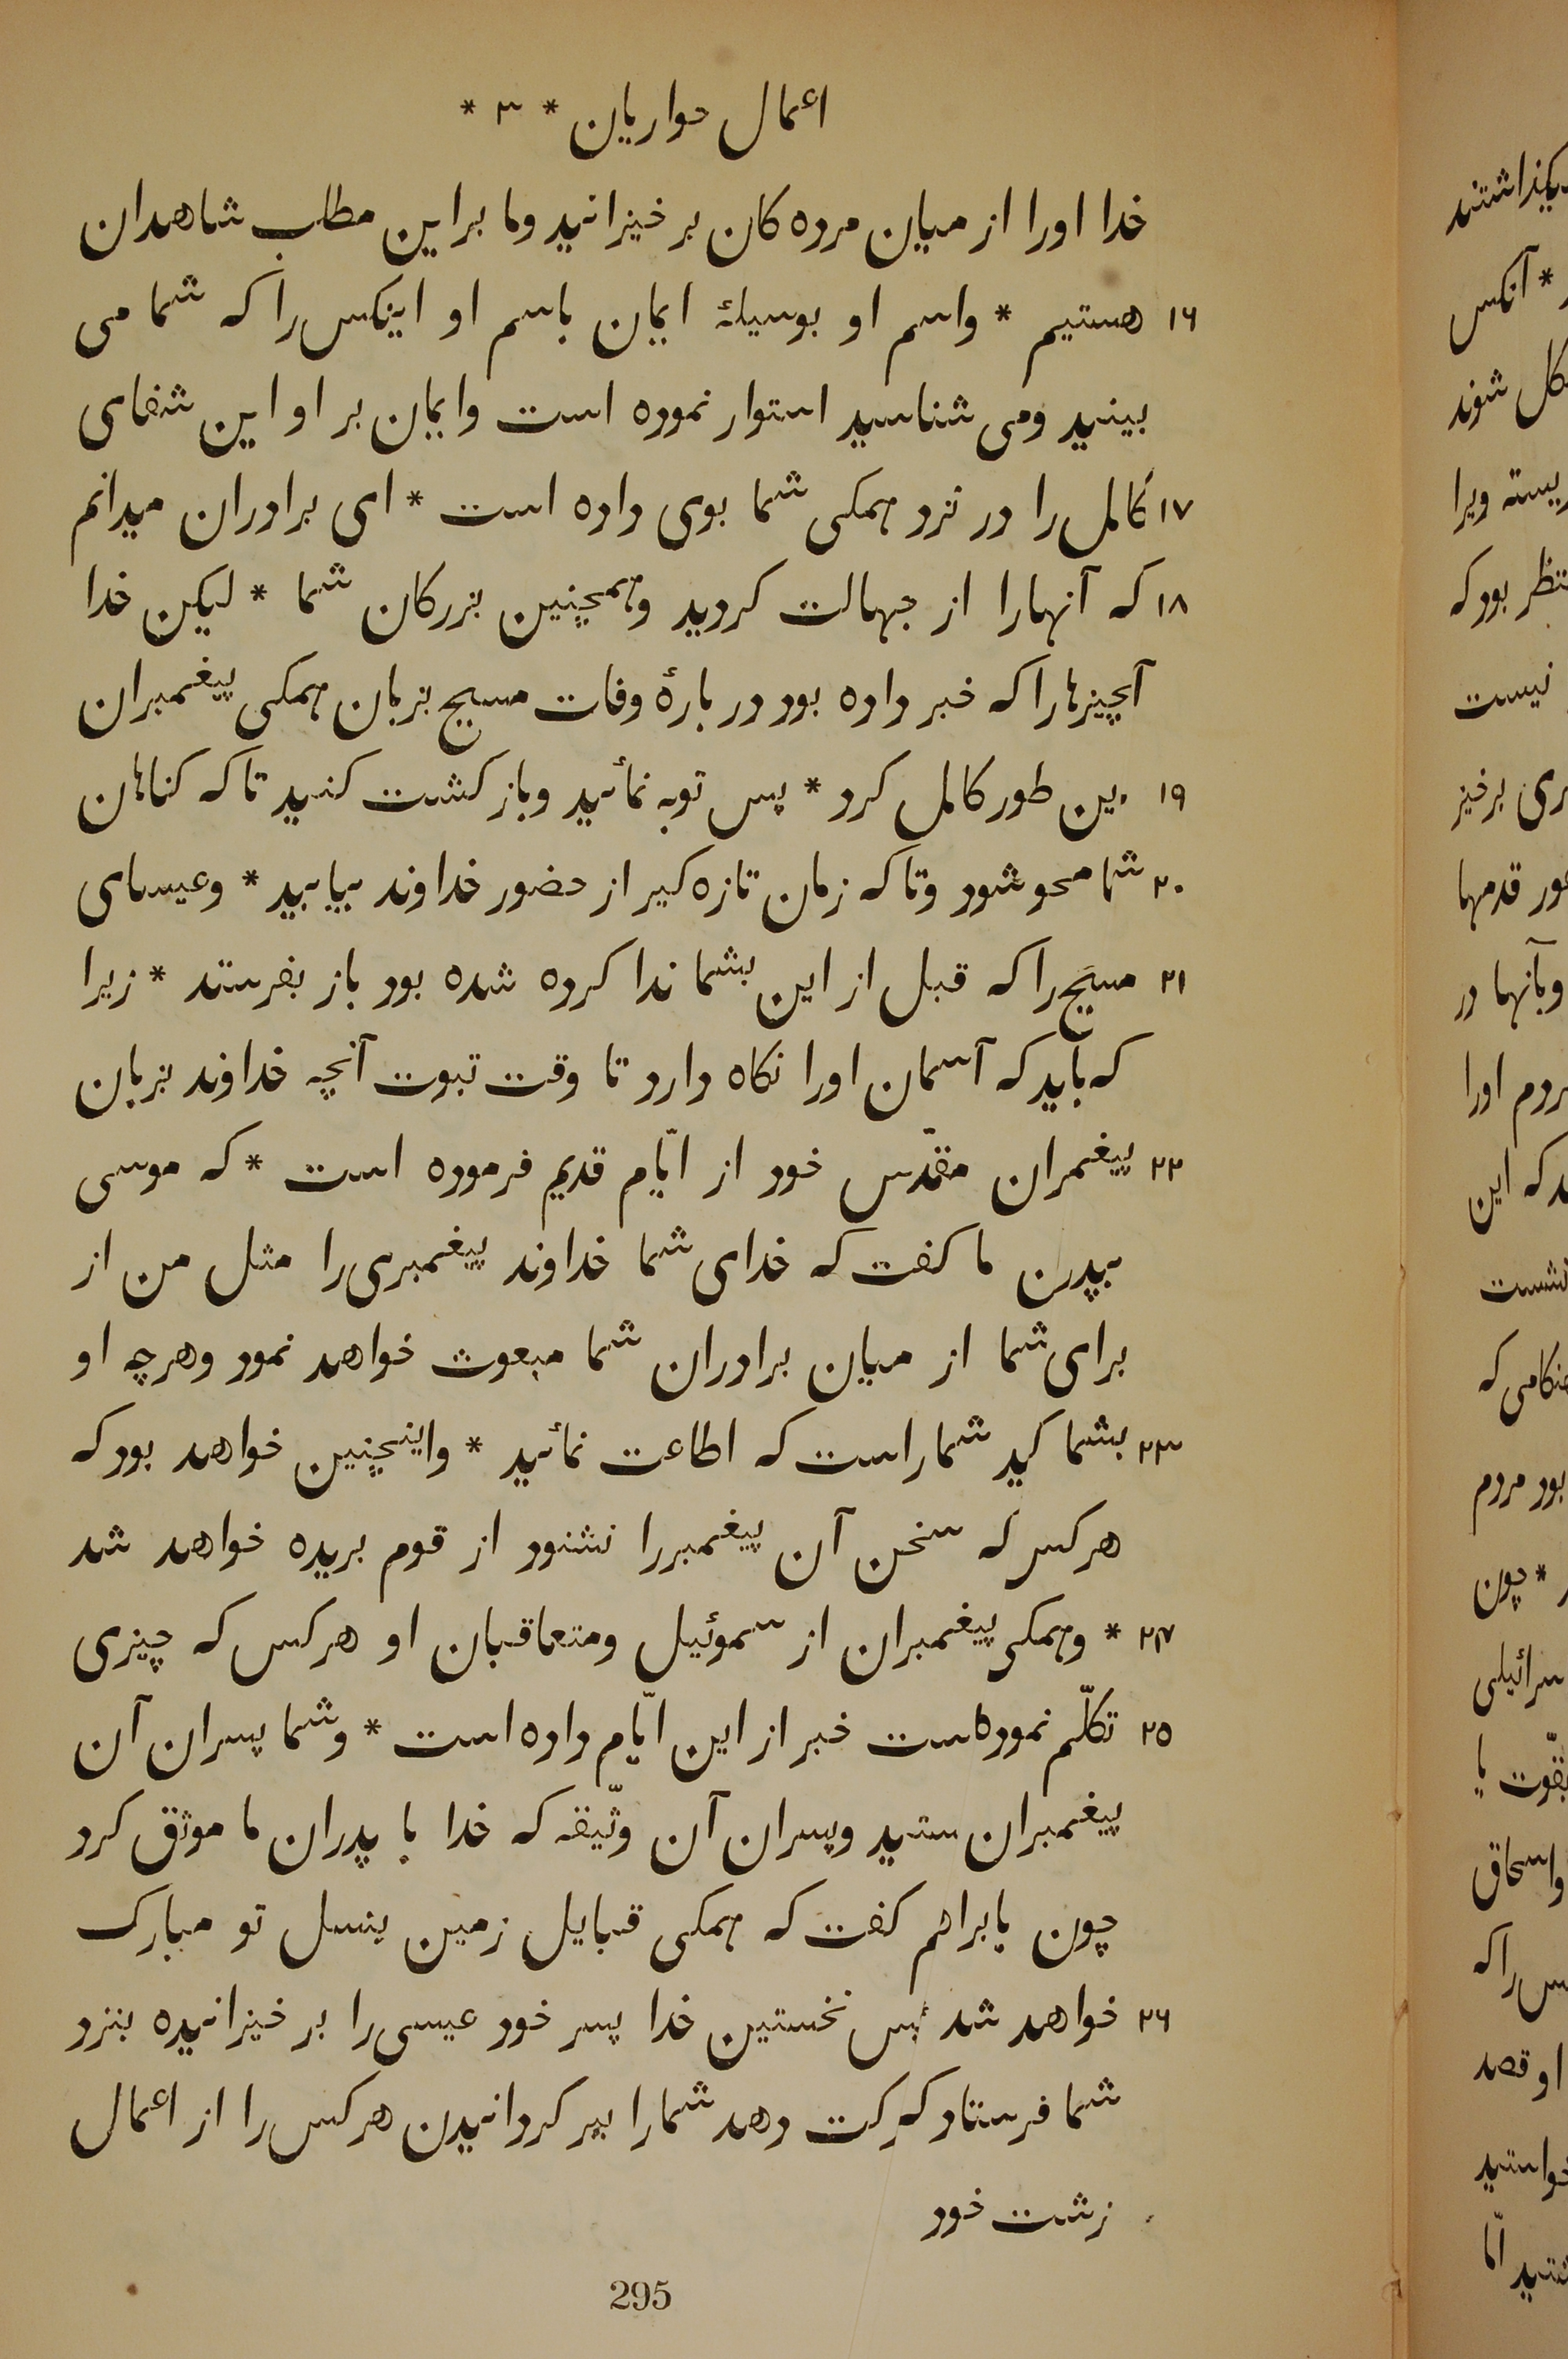 اعمال حواریان * ۳ *
خدا اورا از میان مرده کان بر خیزانید وما براین مطلب شاهدان
۱۶ هستیم * واسم او بوسیلهٔ ایمان باسم او اینکس را که شما می
بینید ومی شناسید استوار نموده است وایمان بر او این شفای
۱۷ کامل را در نزد همکی شما بوی داده است * ای برادران میدانم
۱۸ که آنهارا از جهالت کردید وهمچنین بزرکان شما * لیکن خدا
آنچیزهارا که خبر داده بود در بارهٔ وفات مسیح بزبان همکی پیغمبران
۱۹ بدین طور کامل کرد * پس توبه نمائید وباز کشت کنید تا که کناهان
۲۰ شما محو شود وتا که زمان تازه کیر از حضور خداوند بیابید * وعیسای
۲۱ مسیح را که قبل از این بشما ندا کرده شده بود باز بفرستد * زیرا
که باید که آسمان اورا نکاه دارد تا وقت ثبوت آنچه خداوند بزبان
۲۲ پیغمبران مقدّس خود از ایّام قدیم فرموده است * که موسی
بپدرن ما کفت که خدای شما خداوند پیغمبری را مثل من از
برای شما از میان برادران شما مبعوث خواهد نمود وهرچه او
۲۳ بشما کید شماراست که اطاعت نمائید * واینچنین خواهد بود که
هرکس که سخن آن پیغمبررا نشنود از قوم بریده خواهد شد
۲۴ * وهمکی پیغمبران از سموئیل ومتعاقبان او هرکس که چیزی
۲۵ تکلّم نموده‌است خبر از این ایّام داده است * وشما پسران آن
پیغمبران ستید وپسران آن وثّیقه که خدا با پدران ما موثق کرد
چون بابراهم کفت که همکی قبایل زمین بنسل تو مبارک
۲۶ خواهد شد پس نخستین خدا پسر خود عیسی را بر خیزانیده بنزد
شما فرستاد که برکت دهد شمارا ببر کردانیدن هرکس را از اعمال
زشت خود
295